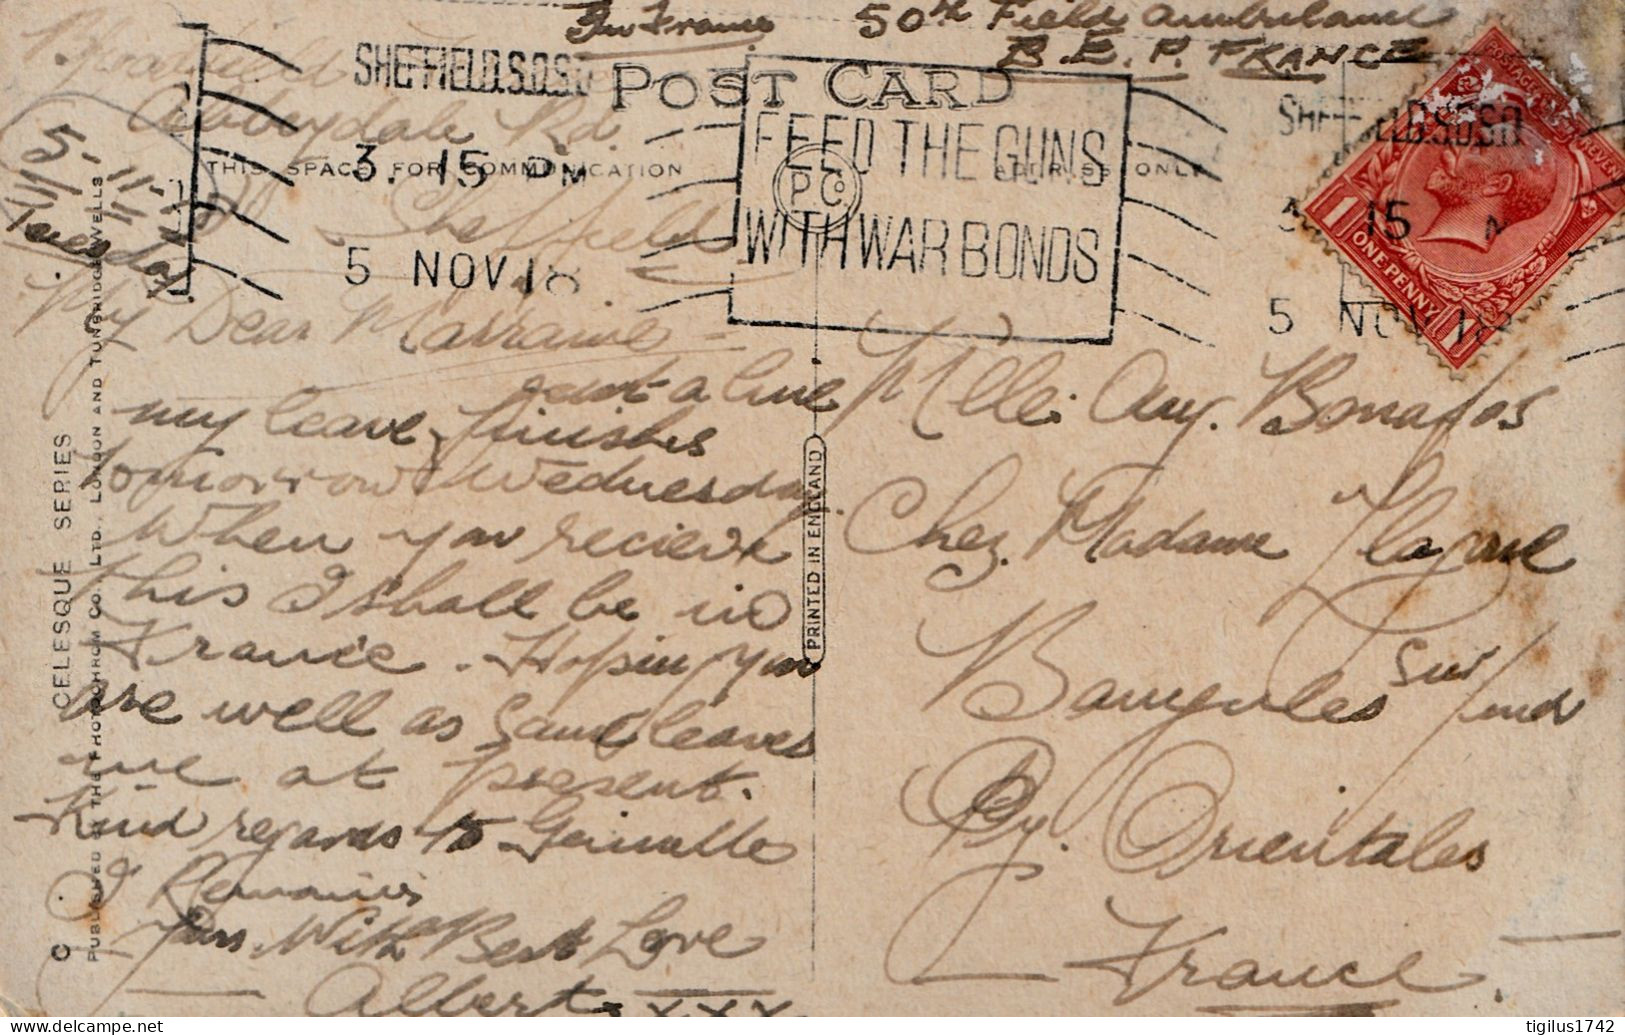 In France
50th Field Ambulance
B.E.F. FRANCE
SHEFFIELD.S.O.S.O
3. 15 PM
5 NOV 18
FEED THE GUNS
WITH WAR BONDS
SHEFFIELD.S.O.S.O
3 15 M
5 NOV 18
POSTAGE REVENUE
1 ONE PENNY 1
POST CARD
THIS SPACE FOR COMMUNICATION
ADDRESS ONLY
P.Co.
Abbeydale Rd.
Sheffield
5-11-18
Tuesday
My Dear Marraine -
Just a line
my leave finishes
tomorrow Wednesday.
When you recieve
this I shall be in
France. Hoping you
are well as same leaves
me at present.
Kind regards to
I Remain
Yours With Best Love
Albert xxx
Mlle. Aug. Bonafos
Chez. Madame
Banyuls sur
Py. Orientales
France
PRINTED IN ENGLAND
CELESQUE SERIES
PUBLISHED BY THE PHOTOCHROM CO. LTD., LONDON AND TUNBRIDGE WELLS
tigilus1742